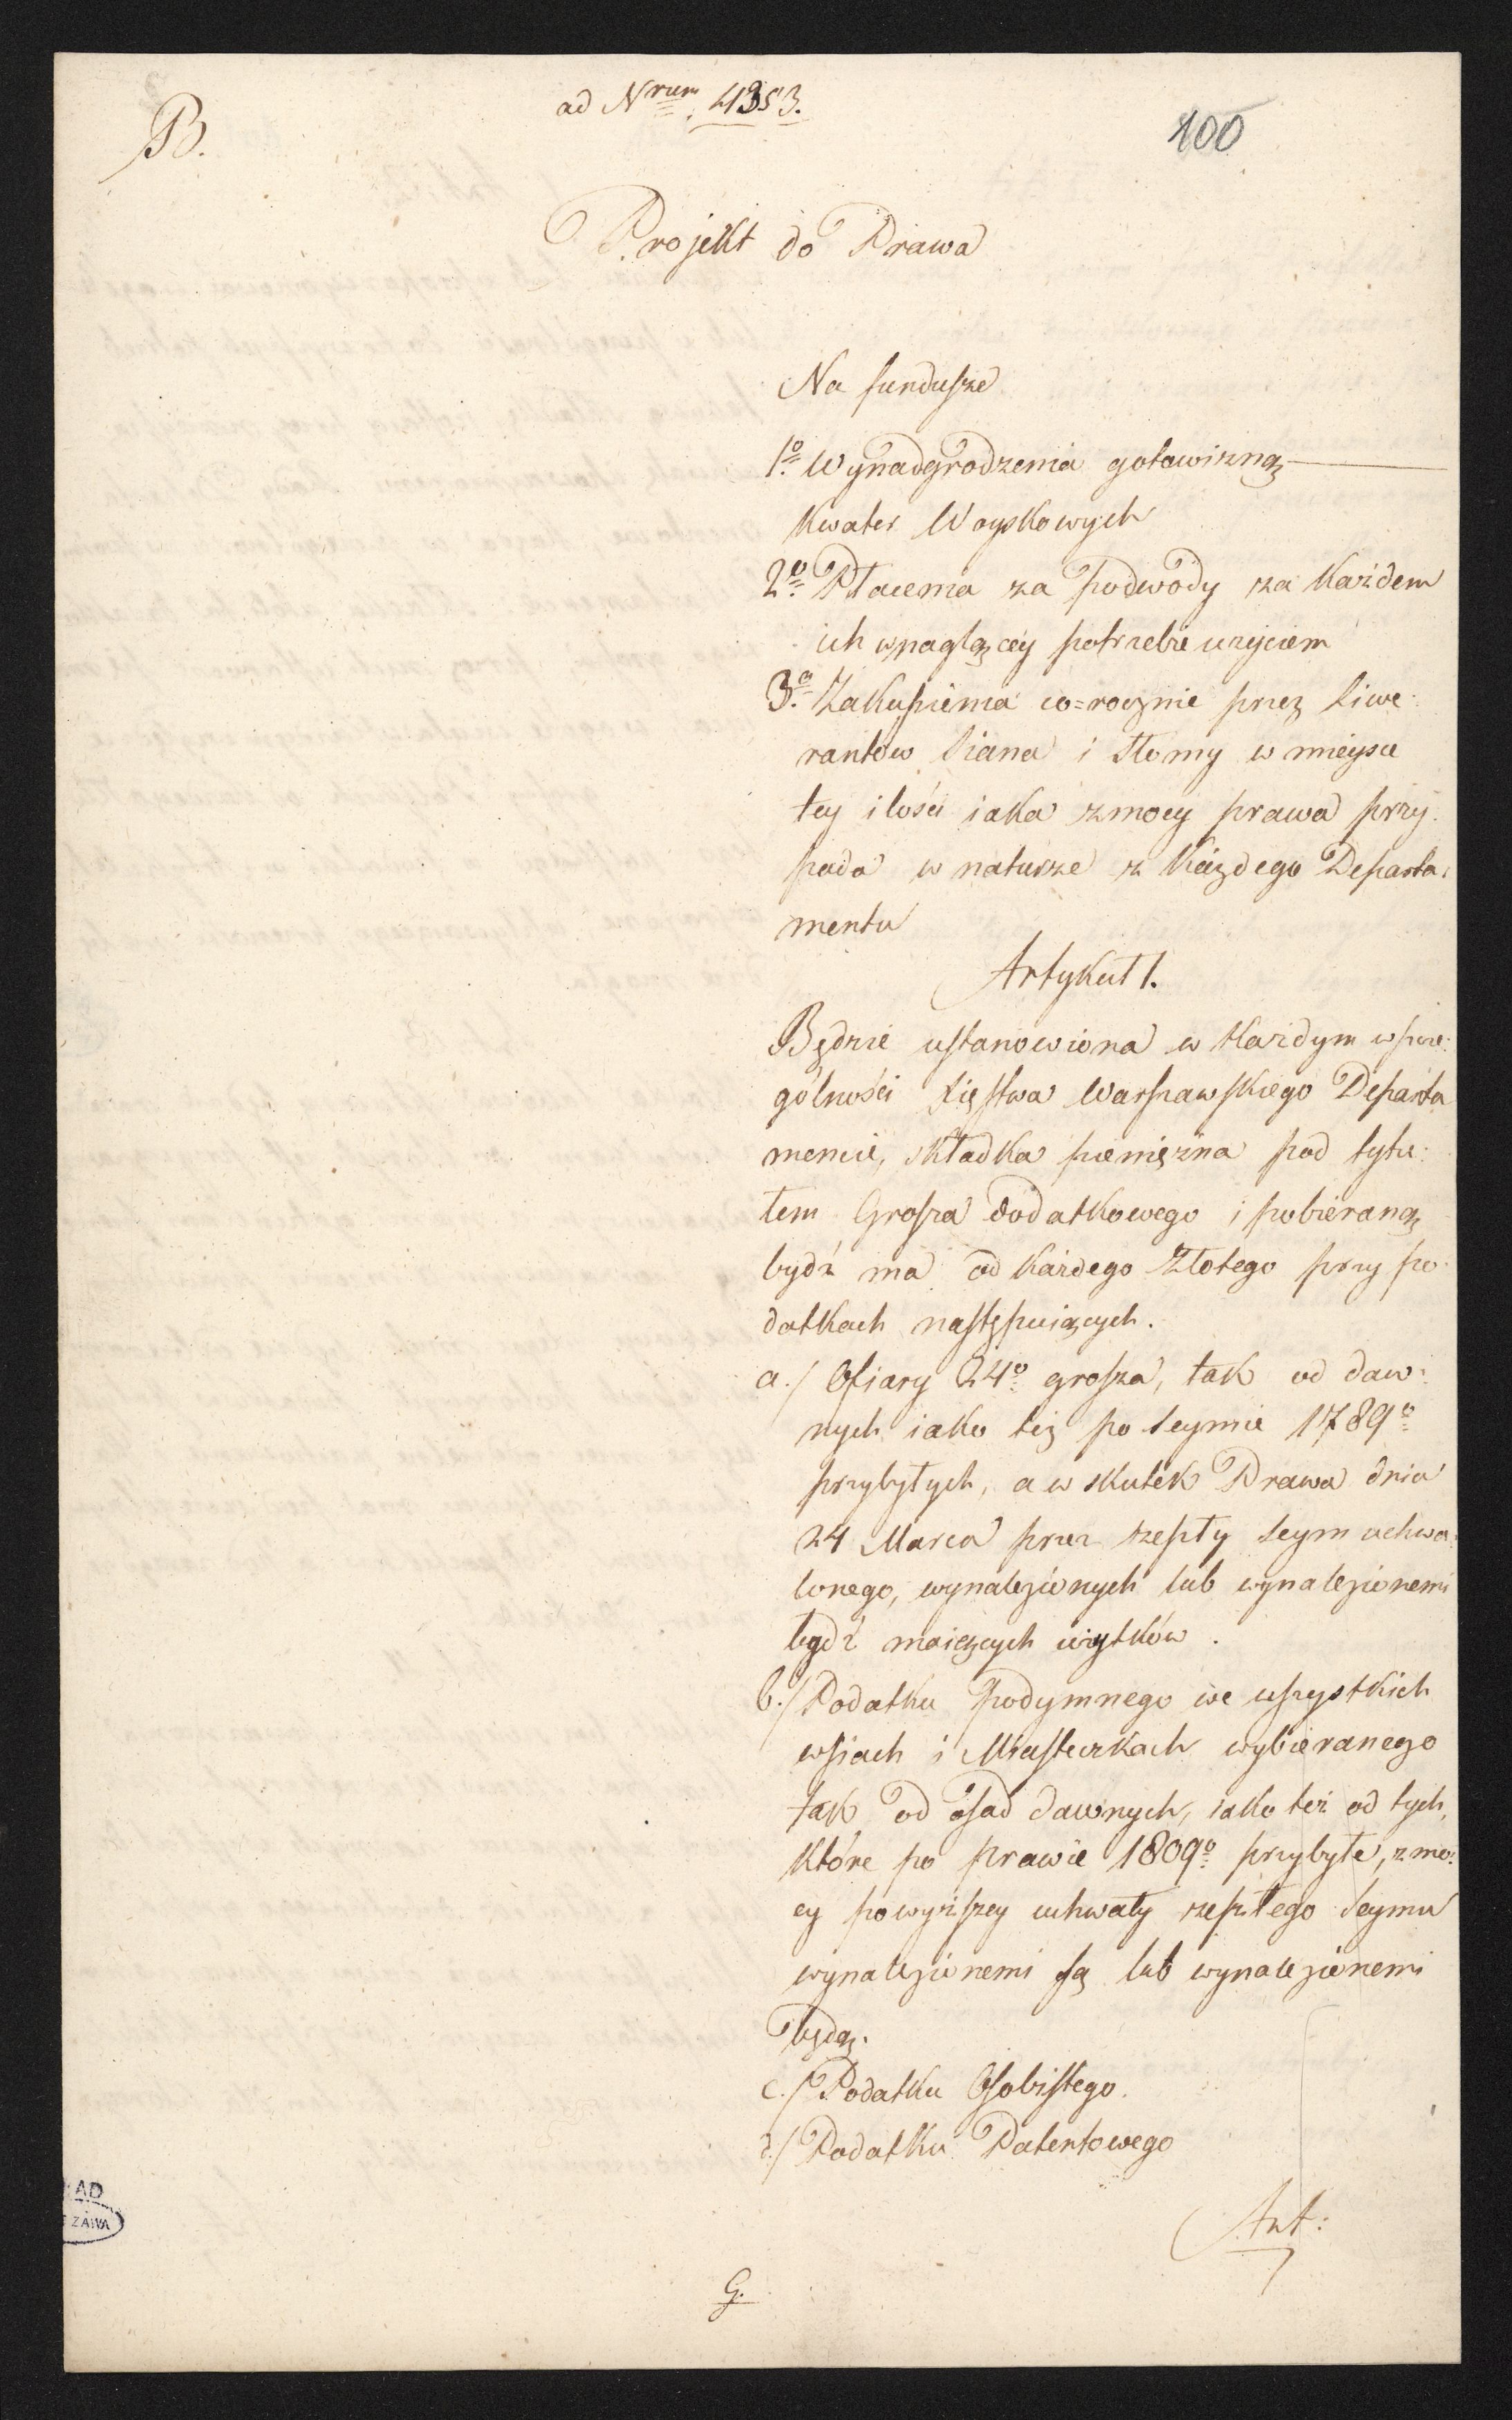 B.
ad Nrum 4353.
100
Projekt do Prawa
Na fundusze
1o Wynadgrodzenia gotowizną
Kwater Woyskowych
2o Płacenia za podwody za każdem
ich w naglącey potrzebie użyciem
3o Zakupienia co=rocznie przez liwe:
rantów siana i słomy w mieysce
tey ilości iaka z mocy prawa przy:
pada w naturze z każdego Departa:
mentu
Artykuł 1.
Będzie ustanowiona w każdym w szcze:
gólności Xięstwa Warszawskiego Departa
mencie, składka pieniężna pod tytu:
łem Grosza dodatkowego i pobieraną
bydź ma od każdego Złotego przy po:
datkach następuiących.
a./ Ofiary 24o grosza, tak od daw:
nych iako też po Seymie 1789o
przybyłych, a w skutek Prawa dnia
24 Marca przez zeszły Seym uchwa:
lonego, wynalezionych lub wynalezionemi
bydź maiących użytków.
b./ Podatku podymnego we wszystkich
wsiach i Miasteczkach wybieranego
tak od osad dawnych, iako też od tych,
które po prawie 1809o przybyłe, z mo:
cy powyższey uchwały zeszłego Seymu
wynalezionemi są lub wynalezionemi
będą.
c./ Podatku Osobistego.
d./ Podatku Patentowego
Art:
G.
AD
ZAWA